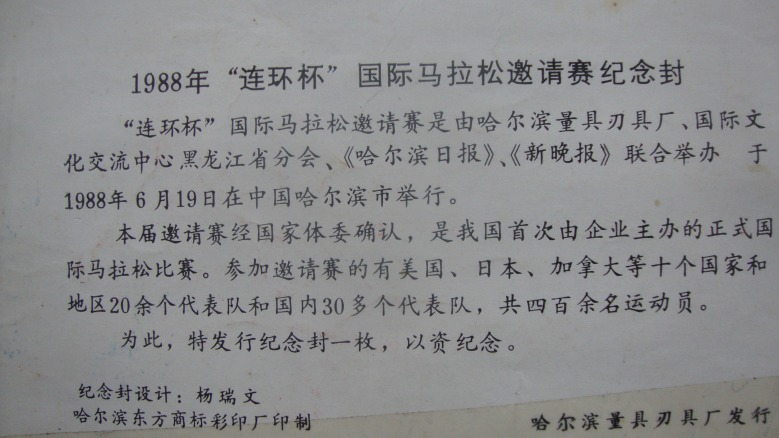 1988年“连环杯”国际马拉松邀请赛纪念封
“连环杯”国际马拉松邀请赛是由哈尔滨量具刃具厂、国际文
化交流中心黑龙江省分会、《哈尔滨日报》、《新晚报》联合举办 于
1988年6月19日在中国哈尔滨市举行。
本届邀请赛经国家体委确认，是我国首次由企业主办的正式国
际马拉松比赛。参加邀请赛的有美国、日本、加拿大等十个国家和
地区20余个代表队和国内30多个代表队，共四百余名运动员。
为此，特发行纪念封一枚，以资纪念。
纪念封设计：杨瑞文
哈尔滨东方商标彩印厂印制
哈尔滨量具刃具厂发行